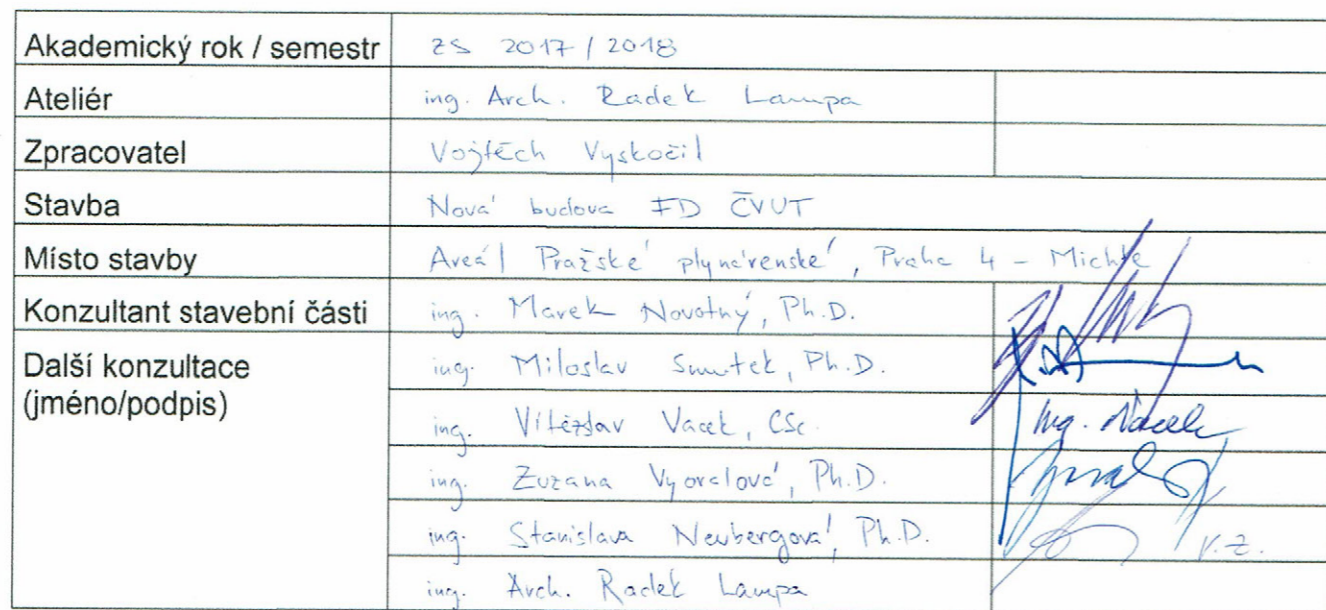 Akademický rok / semestr ZS 2017 / 2018
Ateliér ing. Arch. Radek Lampa
Zpracovatel Vojtěch Vyskočil
Stavba Nová budova FD ČVUT
Místo stavby Areál Pražské plynárenské, Praha 4 - Michle
Konzultant stavební části ing. Marek Novotný, Ph.D.
Další konzultace ing. Miloslav Smutek, Ph.D.
(jméno/podpis) ing. Vítězslav Vacek, CSc. Ing. Vacek
ing. Zuzana Vyoralová, Ph.D.
ing. Stanislava Neubergová, Ph.D. v.z.
ing. Arch. Radek Lampa